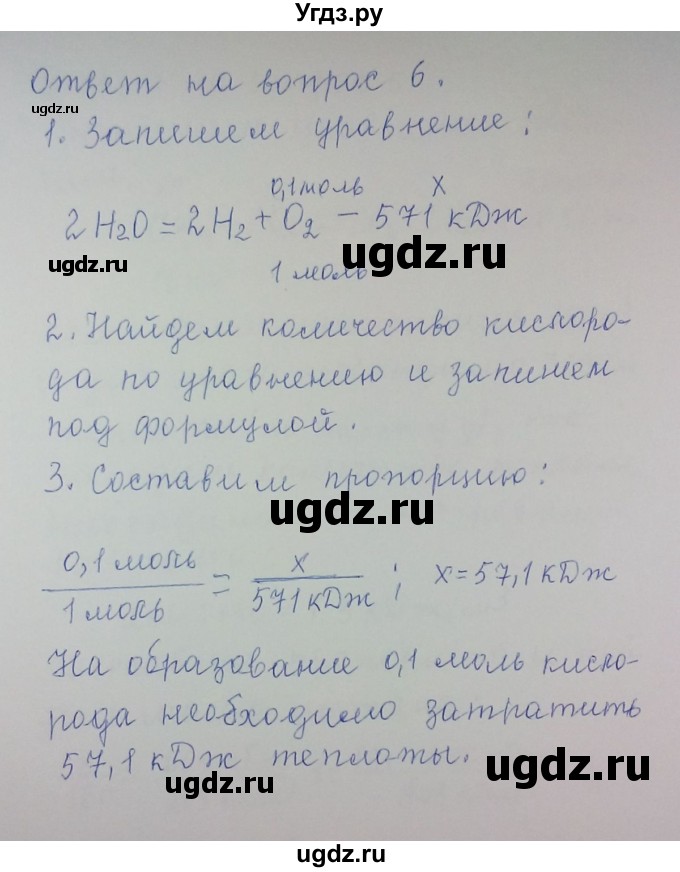 Угдз.ру
Ответ на вопрос 6.
ugdz.ru
1. Запишем уравнение:
0,1 моль x
2H₂O = 2H₂ + O₂ - 571 кДж
ugdz.ru ugdz.ru
1 моль
2. Найдем количество кислоро-
да по уравнению и запишем
под формулой.
3. Составим пропорцию:
ugdz.ru
0,1 моль / 1 моль = x / 571 кДж ; x = 57,1 кДж
На образование 0,1 моль кисло-
рода необходимо затратить
57,1 кДж теплоты.
ugdz.ru
ugdz.ru
ugdz.ru